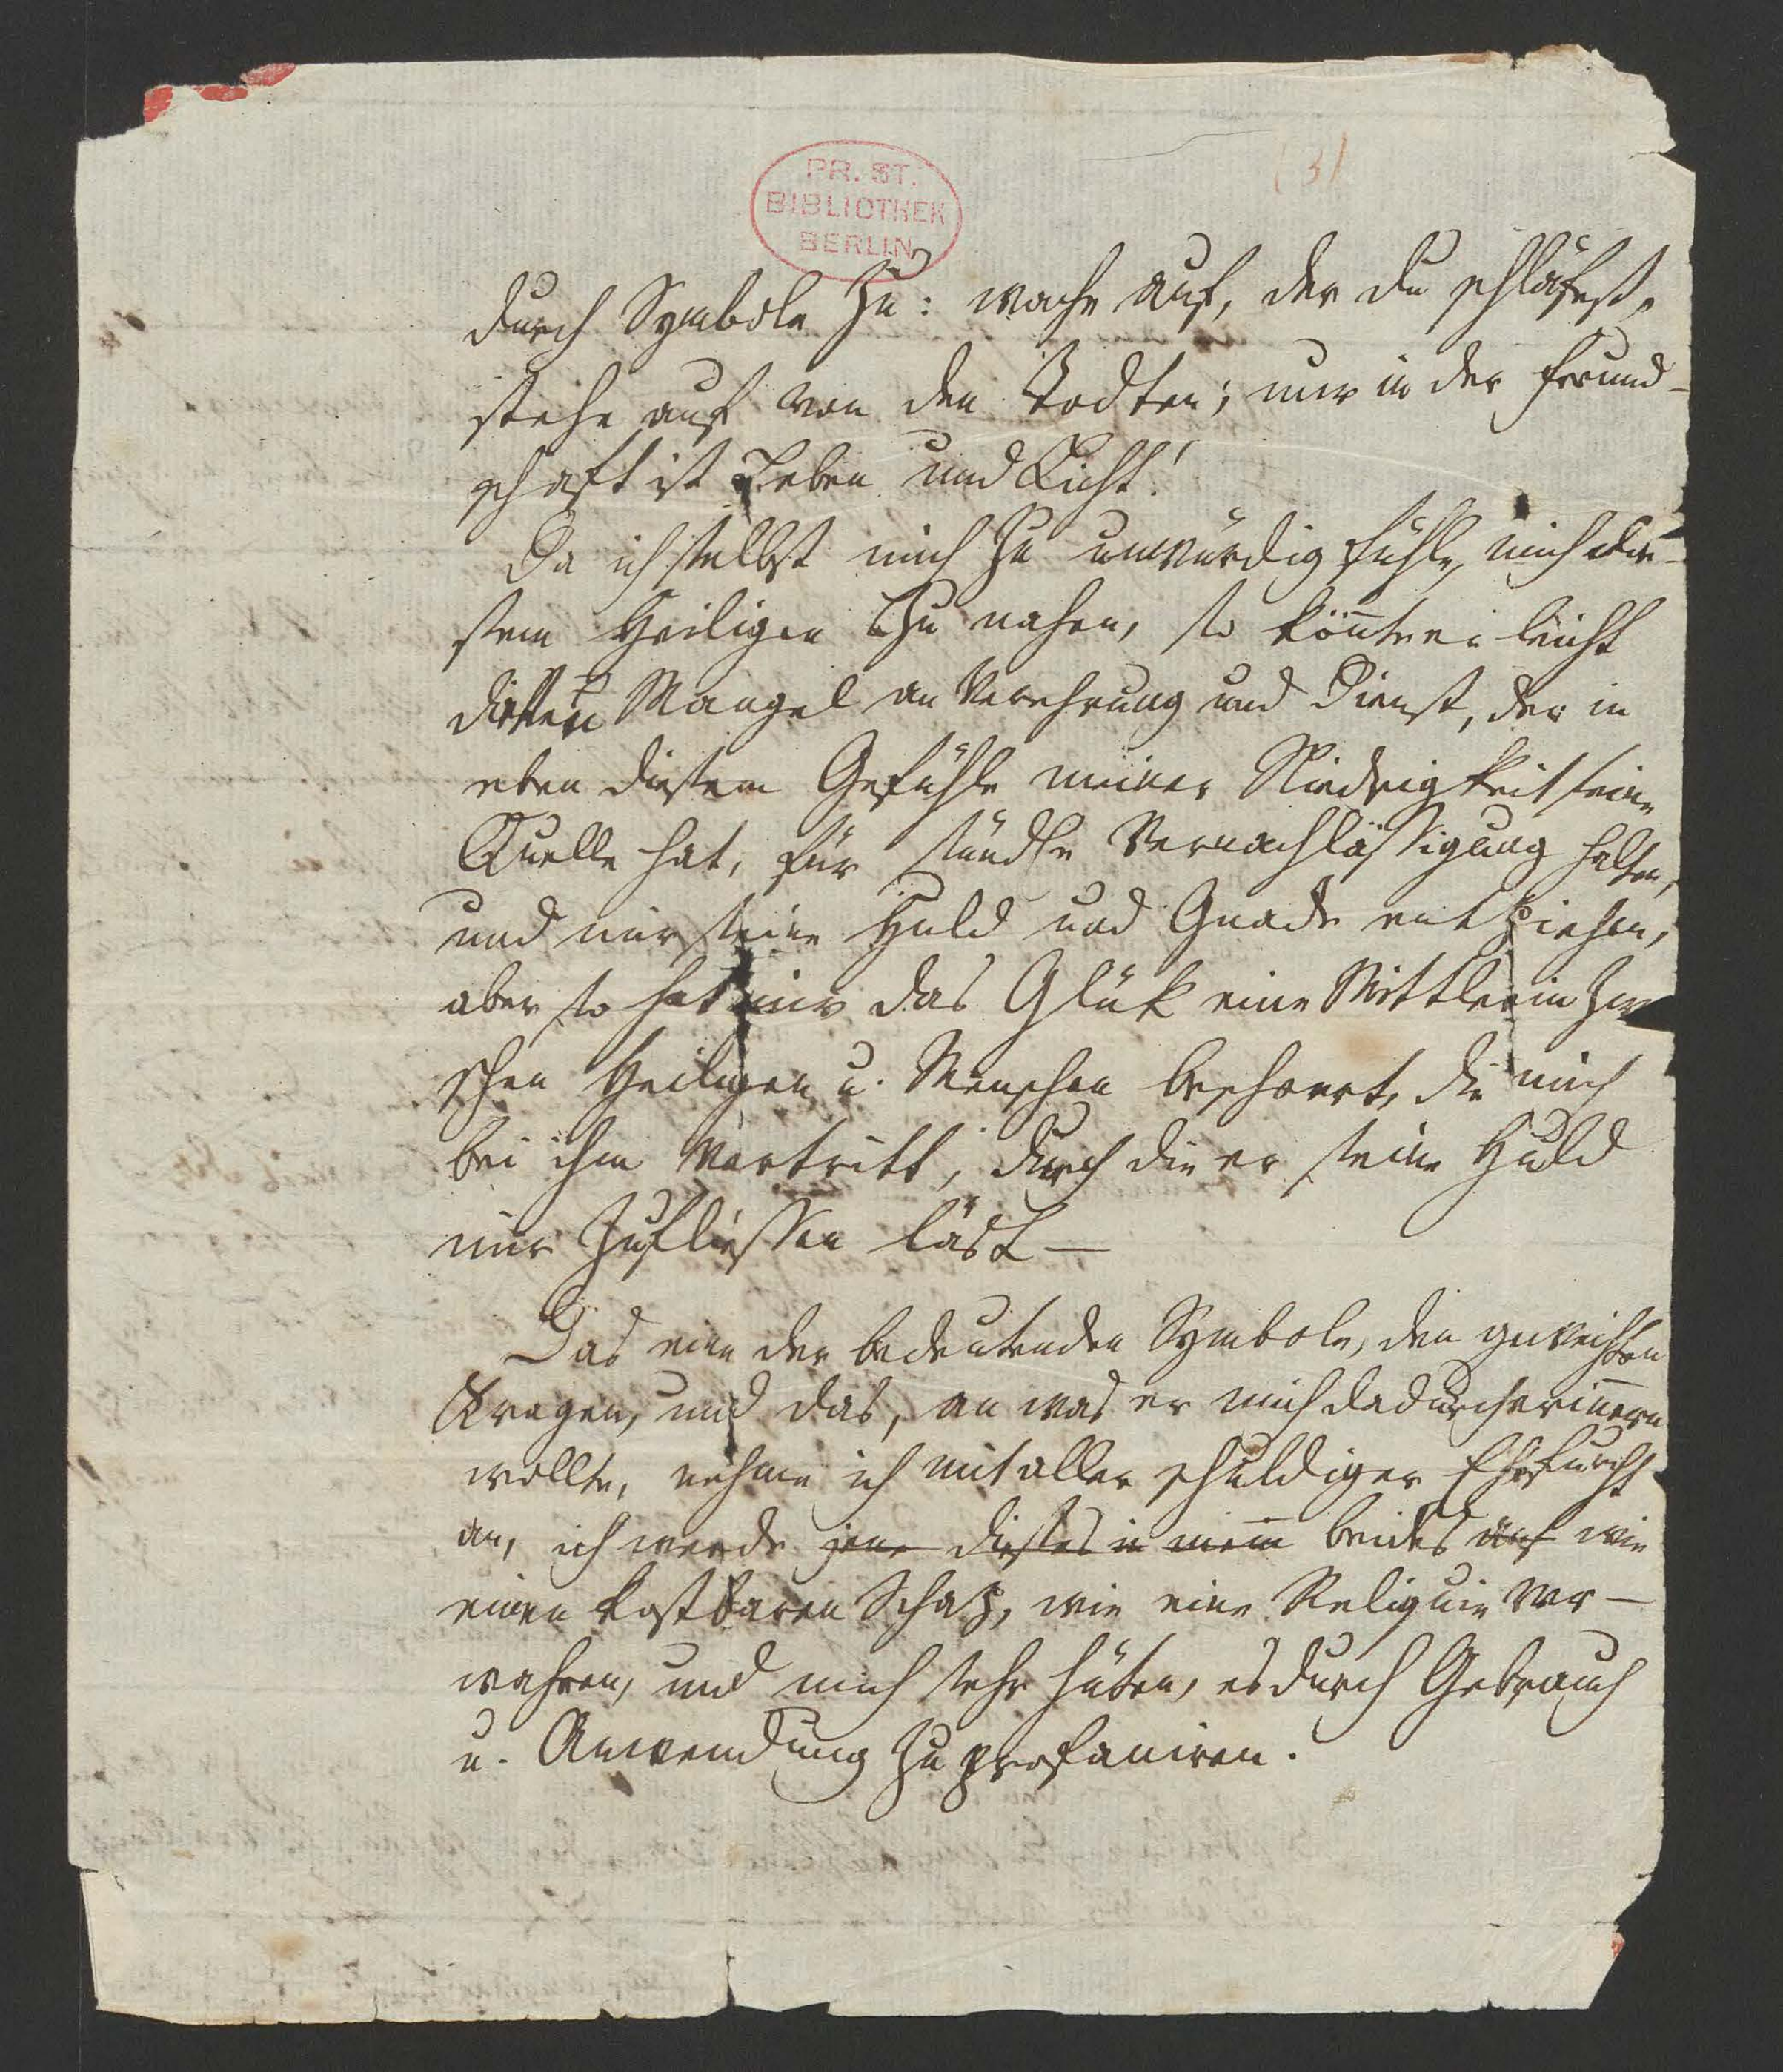 (3)
PR. ST.
BIBLIOTHEK
BERLIN
durch Symbole zu: wache auf, der du schläfest,
stehe auf von den Todten; nur in der Freund-
schaft ist Leben und Licht!
Da ich selbst mich zu unwürdig fühle, mich die-
sem Heiligen zu nahen, so könnte er leicht
diesen Mangel an Verehrung und Dienst, der in
eben diesem Gefühle meiner Niedrigkeit seine
Quelle hat, für schnöde Vernachlässigung halten,
und mir seine Huld und Gnade entziehen,
aber so hat mir das Glük eine Mittlerin zwi
schen Heiligen u. Menschen beschert, die mich
bei ihm vertritt, durch die er seine Huld
mir zufliessen läst —
Das eine der bedeutenden Symbole, den geweihten
Kragen, und das, an was er mich dadurch erinnern
wollte, nehme ich mit aller schuldiger Ehrfurcht
an, ich werde jene dieses in meinem beides auf wie
einen kostbaren Schaz, wie eine Reliquie ver-
wahren, und mich sehr hüten, es durch Gebrauch
u. Anwendung zu profaniren.